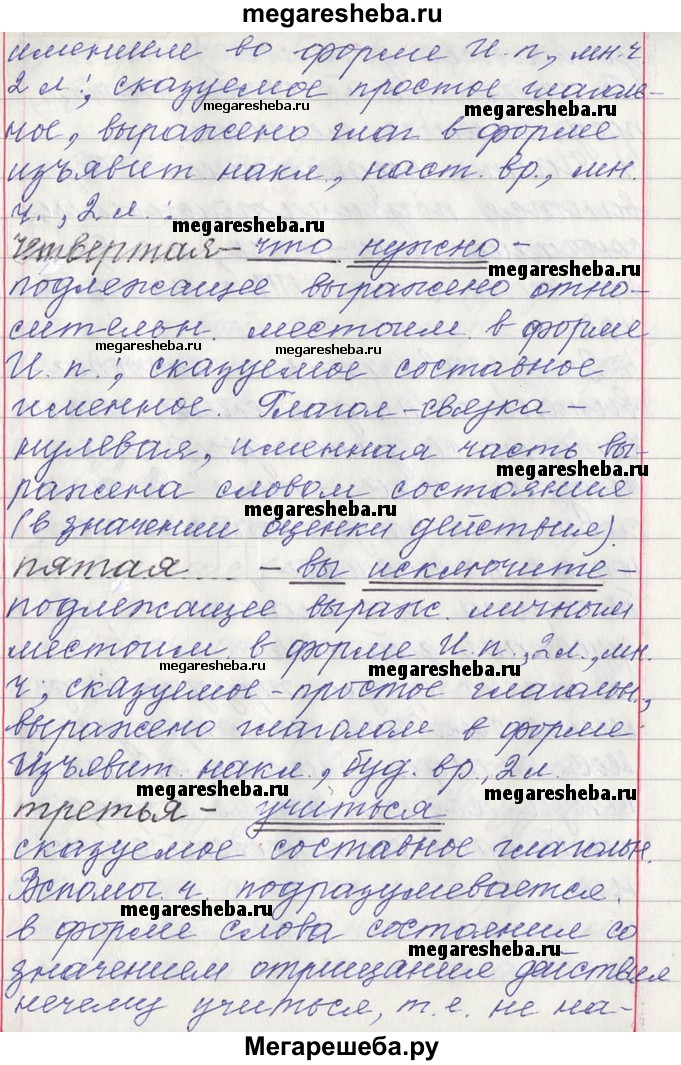 megaresheba.ru
имением во форме И.п., мн.ч
2 л.; сказуемое простое глаголь-
megaresheba.ru
megaresheba.ru
ное, выражено глаг. в форме
изъявит накл., наст. вр., мн.
ч., 2 л.:
megaresheba.ru
четвертая – что нужно –
megaresheba.ru
подлежащее выражено отно-
сительн. местоим. в форме
megaresheba.ru
megaresheba.ru
И.п.; сказуемое составное
именное. Глагол-связка –
нулевая, именная часть вы-
megaresheba.ru
ражена словом состояния
megaresheba.ru
(в значении оценки действия).
пятая – вы исключите –
подлежащее выраж. личным
местоим. в форме И.п., 2 л., мн.
megaresheba.ru
megaresheba.ru
ч., сказуемое – простое глагольн.,
выражено глаголом в форме
изъявит. накл., буд. вр., 2 л.
megaresheba.ru
megaresheba.ru
третья – учиться
сказуемое составное глагольн.
Вспомог. ч. подразумевается
megaresheba.ru
в форме слова состояния со
megaresheba.ru
значением отрицания действия
нечему учиться, т.е. не на-
Мегарешеба.ру